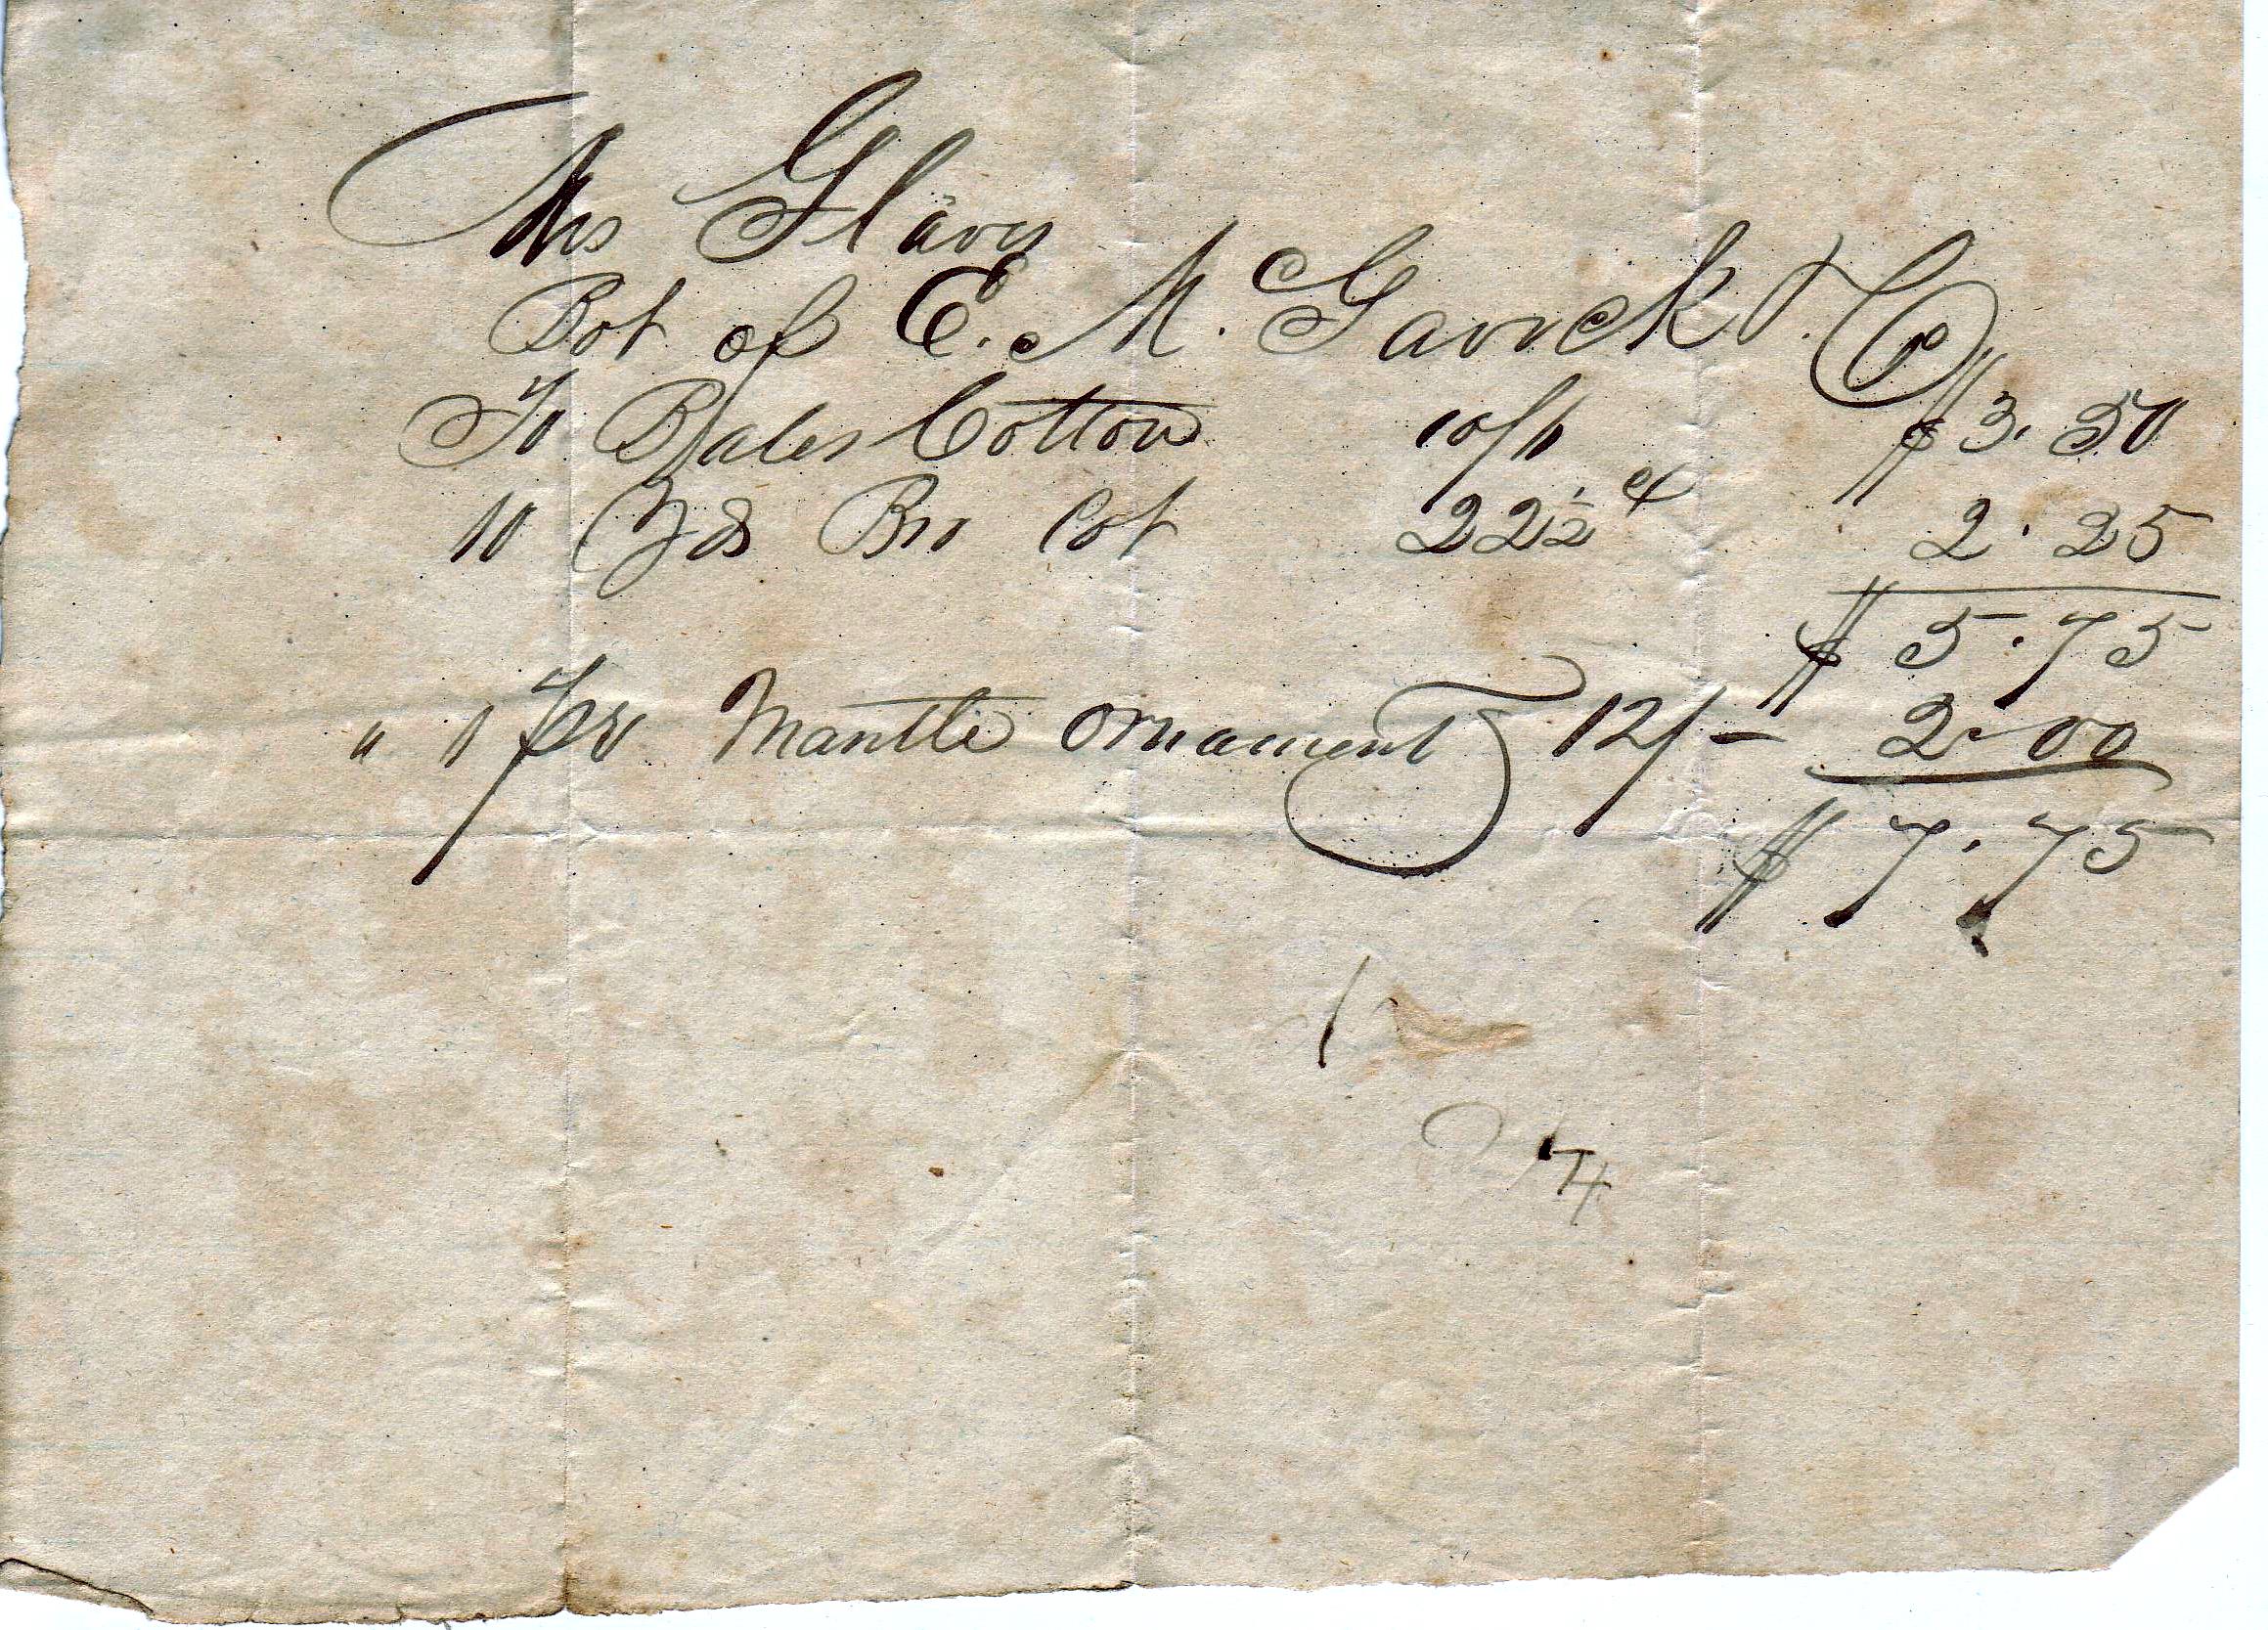 Mrs Glavy
Bot of E. Mc Garrck & Co
To Bales Cotton 10/6 $3.50
10 Yds Bro Cot 22½ c 2.25
$ 5.75
" 1 Pr Mantle Ornament 12/- 2.00
$ 7.75